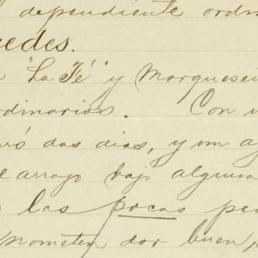 dependiente ordin
cedes.
"La Fé" y Marquesei
rdinarios. Con
ró dos dias, y un a
e arrojo bajo alguna
las pocas pe
prometen dar buen